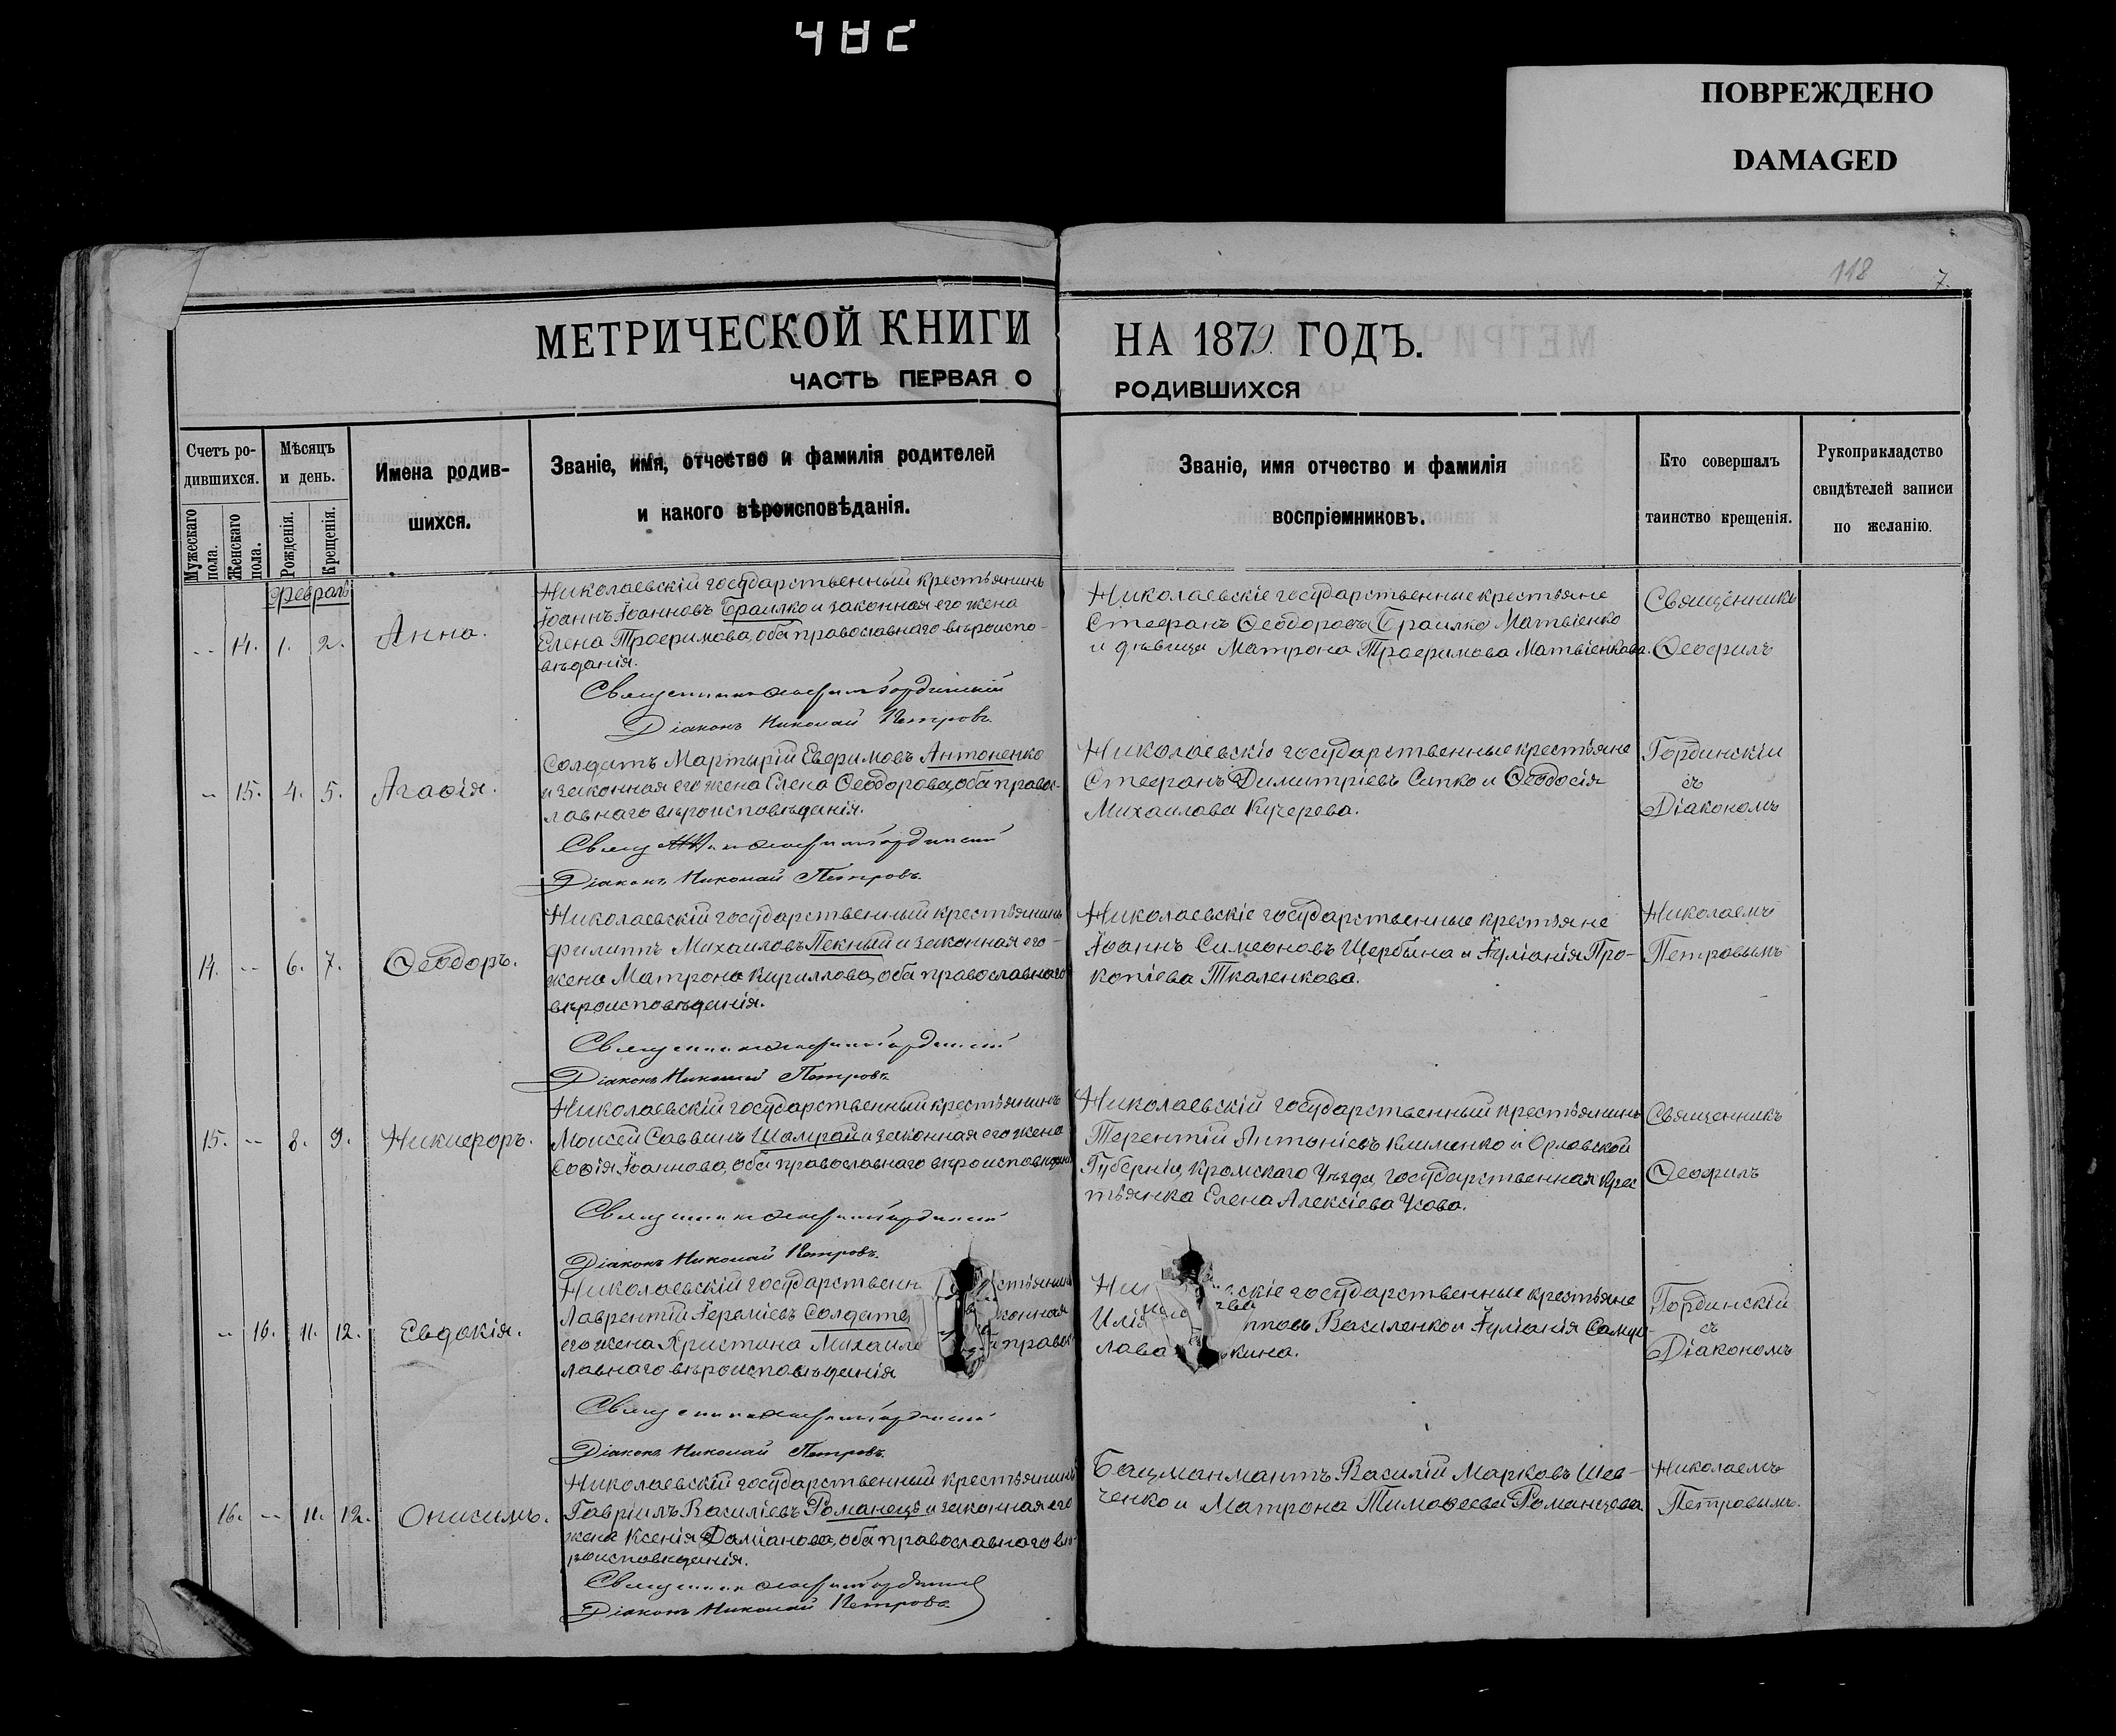 ПОВРЕЖДЕНО
DAMAGED
118
7.
МЕТРИЧЕСКОЙ КНИГИ НА 1879 ГОДЪ.
ЧАСТЬ ПЕРВАЯ О РОДИВШИХСЯ
Счетъ ро-
дившихся.
Мужескаго пола.
Женскаго пола.
Мѣсяцъ
и день.
Рожденія.
Крещенія.
Имена родив-
шихся.
Званіе, имя, отчество и фамилія родителей
и какого вѣроисповѣданія.
Званіе, имя отчество и фамилія
воспріемниковъ.
Кто совершалъ
таинство крещенія.
Рукоприкладство
свидѣтелей записи
по желанію.
Февраль
-- 14. 1. 2. Анна.
Николаевскій государственный крестьянинъ
Іоаннъ Іоанновъ Браилко и законная его жена
Елена Трофимова, оба православнаго вѣроиспо-
вѣданія.
Священникъ Ѳеофилъ Гординскій
Діаконъ Николай Петровъ.
Николаевскіе государственные крестьяне
Стефанъ Ѳеодоровъ Браилко Матвіенко
и дѣвица Матрона Трофимова Матвіенкова.
Священникъ
Ѳеофилъ
-- 15. 4. 5. Агаѳія.
Солдатъ Мартырій Евфимовъ Антоненко
и законная его жена Елена Ѳеодорова, оба право-
лавнаго вѣроисповѣданія.
Священникъ Ѳеофилъ Гординскій
Діаконъ Николай Петровъ.
Николаевскіе государственные крестьяне
Стефанъ Димитріевъ Сипко и Ѳеодосія
Михаилова Кучерева.
Гординскій
съ
Діакономъ
14. -- 6. 7. Ѳеодоръ.
Николаевскій государственный крестьянинъ
Филиппъ Михаиловъ Пекный и законная его
жена Матрона Кириллова, оба православнаго
вѣроисповѣданія.
Священникъ Ѳеофилъ Гординскій
Діаконъ Николай Петровъ.
Николаевскіе государственные крестьяне
Іоаннъ Симеоновъ Щербина и Іуліанія Про-
копіева Ткаленкова.
Николаемъ
Петровымъ
15. -- 8. 9. Никифоръ.
Николаевскій государственный крестьянинъ
Моисей Саввинъ Шамрай и законная его жена
Софія Іоаннова, оба православнаго вѣроисповѣданія
Священникъ Ѳеофилъ Гординскій
Діаконъ Николай Петровъ.
Николаевскій государственный крестьянинъ
Терентій Антоніевъ Клименко и Орловской
Губерніи, Кромскаго Уѣзда, государственная крес
тьянка Елена Алексіева Усова.
Священникъ
Ѳеофилъ
-- 16. 11. 12. Евдокія.
Николаевскій государственн стьянинъ
Лаврентій Іереміевъ Солдат конная
его жена Христина Михаило правос
лавнаго вѣроисповѣданія
Священникъ Ѳеофилъ Гординскій
Діаконъ Николай Петровъ.
Ни скіе государственные крестьяне
Илія пповъ Василенко и Іуліанія Самуи-
лова кина.
Гординскій
съ
Діакономъ
16. -- 11. 12. Онисимъ.
Николаевскій государственный крестьянинъ
Гавріилъ Василіевъ Романецъ и законная его
жена Ксенія Даміанова, оба православнаго вѣ-
роисповѣданія.
Священникъ Ѳеофилъ Гординскій
Діаконъ Николай Петровъ
Бацманматъ Василій Марковъ Шев-
ченко и Матрона Тимоѳеева Романцова.
Николаемъ
Петровымъ.